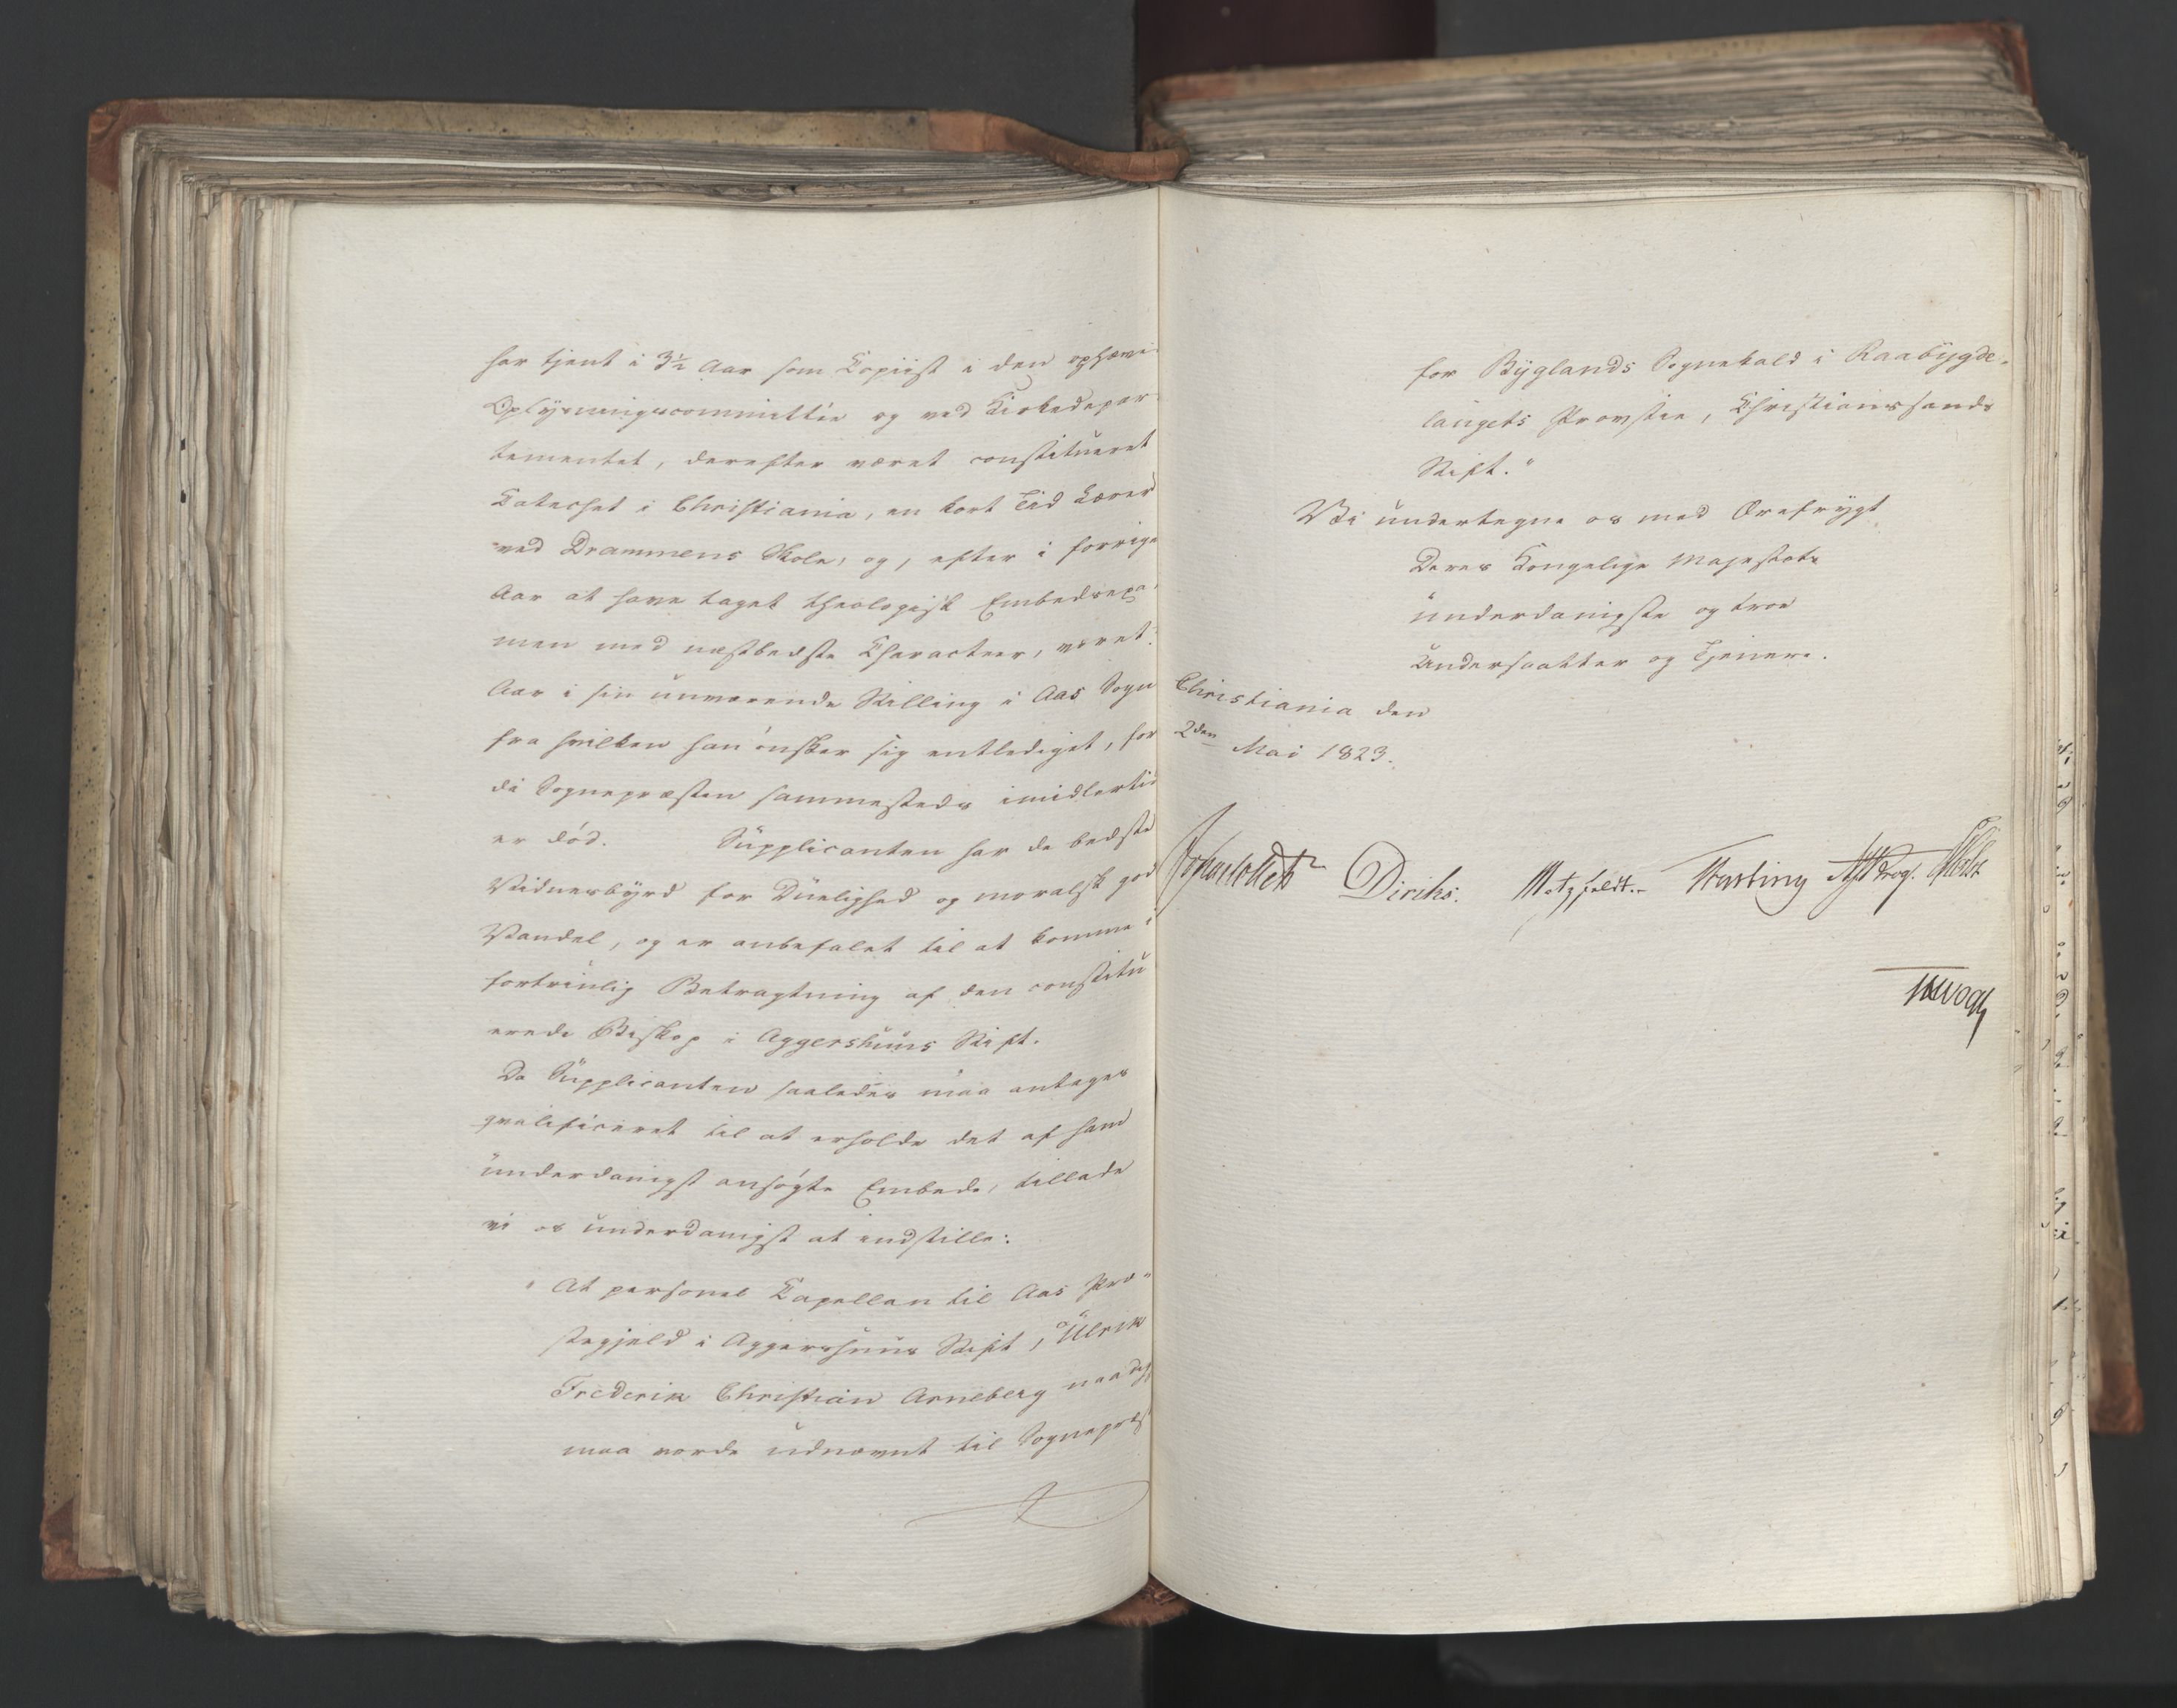 har tjent i 3½ Aar som Copiist i den ophæve
Oplysningscommittée og ved Kirkedepar
tementet, derefter været constitueret
Catechet i Christiania, en kort Tid Lærer
ved Drammens Skole, og, efter i forrige
Aar at have taget theologisk Embedsexa
men med næstbedste Characteer, været
Aar i sin nuværende Stilling i Aas Sogn
fra hvilken han ønsker sig entlediget, for
di Sognepræsten sammesteds imidlertid
er død. Supplicanten har de bedste
Vidnesbyrd for Duelighed og moralsk god
Vandel, og er anbefalet til at komme i
fortrinlig Betragtning af den constitu
erede Biskop i Aggershuus Stift.
Da Supplicanten saaledes maa antages
qvalificeret til at erholde det af ham
underdanigst ansøgte Embede, tillade
vi os underdanigst at indstille:
" At personel Capellan til Aas Præ"
stegjeld i Aggershuus Stift, Ulrik
Frederik Christian Arneberg naadigst
maa vorde udnævnt til Sognepræst
for Byglands Sognekald i Raabygde-
laugets Provstie, Christianssands
Stift."
Vi undertegne os med Ærefrygt
Deres Kongelige Majestæts
underdanigste og troe
Undersaatter og Tjenere.
Christiania den
2den Mai 1823.
Diriks. Motzfeldt. Fasting